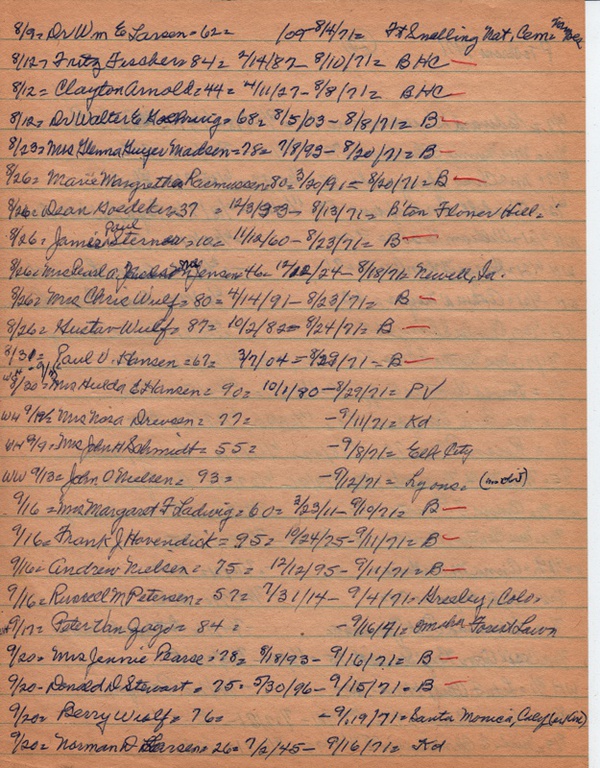 8/9= Dr Wm E Larsen = 62= 8/4/71= Ft Snelling Nat. Cem=
8/12= Fritz Fischer= 84= 2/14/87- 8/10/71= BHC —
8/12= Clayton Arnold= 44= 4/11/27- 8/8/71= BHC —
8/12= Dr Walter E = 68= 8/5/03- 8/8/71= B —
8/23= Mrs Glenna Guyer Madsen= 78= 7/8/93- 8/20/71= B —
8/26= Marie Margretha Rasmussen 80= 3/20/91= 8/20/71= B —
8/26= Dean Goedeker 37 = 12/3/33- 8/13/71= B'ton Flower Hill=
8/26= James Paul = 10= 11/12/60- 8/23/71= B —
8/26= Mrs Jensen= 46= /24- 8/18/71= Newell, Ia.
8/26= Mrs Chris Wulf= 80= 4/14/91- 8/23/71= B —
8/26= Gustav Wulf= 87= 10/2/83= 8/24/71= B —
8/31= Paul V. Hansen= 67= 3/7/04= 8/29/71= B —
8/30= Mrs Hulda E Hansen= 90= 10/1/80- 8/29/71= PV
WH Mrs Nora Drevsen= 77= - 9/11/71= Kd
WH 9/9= Mrs John H Schmidt= 55= - 9/8/71= Elk City
WW 9/13= John O Nielsen= 93= - 9/12/71= Lyons=
9/16= Mrs Margaret F Ladwig= 60= 3/23/11- 9/10/71= B —
9/16= Frank J Havendick= 95= 10/24/75- 9/11/71= B —
9/16= Andrew Nielsen= 75= 12/12/95- 9/11/71= B —
9/16= Russell M Petersen= 57= 7/31/14- 9/4/71= Greeley, Colo=
9/17= Peter Van = 84= - 9/16/71= Omaha Forest Lawn
9/20= Mrs Jennie Pearse= 78= 8/18/93- 9/16/71= B —
9/20- Donald D Stewart= 75= 5/30/96- 9/15/71= B —
9/20= Berry Wulf= 76= - 9/19/71= Santa Monica,
9/20= Norman D Larsen= 26= 7/2/45- 9/16/71= Kd